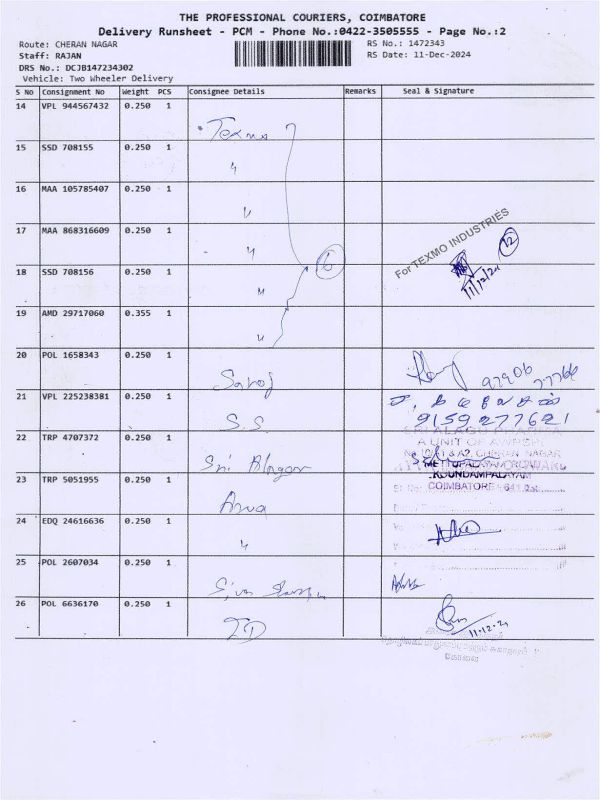 THE PROFESSIONAL COURIERS, COIMBATORE
Delivery Runsheet - PCM - Phone No.:0422-3505555 - Page No.:2
Route: CHERAN NAGAR
RS No.: 1472343
Staff: RAJAN
RS Date: 11-Dec-2024
DRS No.: DCJB147234302
Vehicle: Two Wheeler Delivery
S No Consignment No Weight PCS Consignee Details Remarks Seal & Signature
14 VPL 944567432 0.250 1 Texmo
15 SSD 708155 0.250 1 "
16 MAA 105785407 0.250 1 "
17 MAA 868316609 0.250 1 "
For TEXMO INDUSTRIES
12
6
11/12/24
18 SSD 708156 0.250 1 "
19 AMD 29717060 0.355 1 "
20 POL 1658343 0.250 1 Saroj
21 VPL 225238381 0.250 1 S.S
9159277621
A UNIT OF
CHERAN NAGAR
METTUPALAYAM ROAD
KOUNDAMPALAYAM
COIMBATORE - 641
22 TRP 4707372 0.250 1 Sri Alagar
23 TRP 5051955 0.250 1
24 EDQ 24616636 0.250 1 "
25 POL 2607034 0.250 1 Siva
26 POL 6636170 0.250 1
11.12.24
கோவை